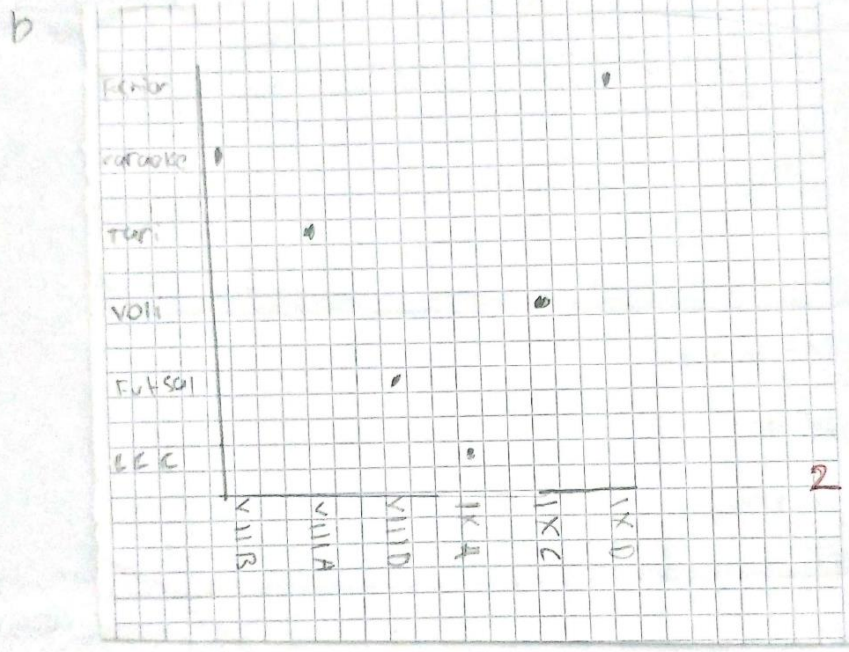 b
karaoke
Tari
Voli
Futsal
2
VIIIB
VIIIA
VIIID
IXA
IXC
IXD